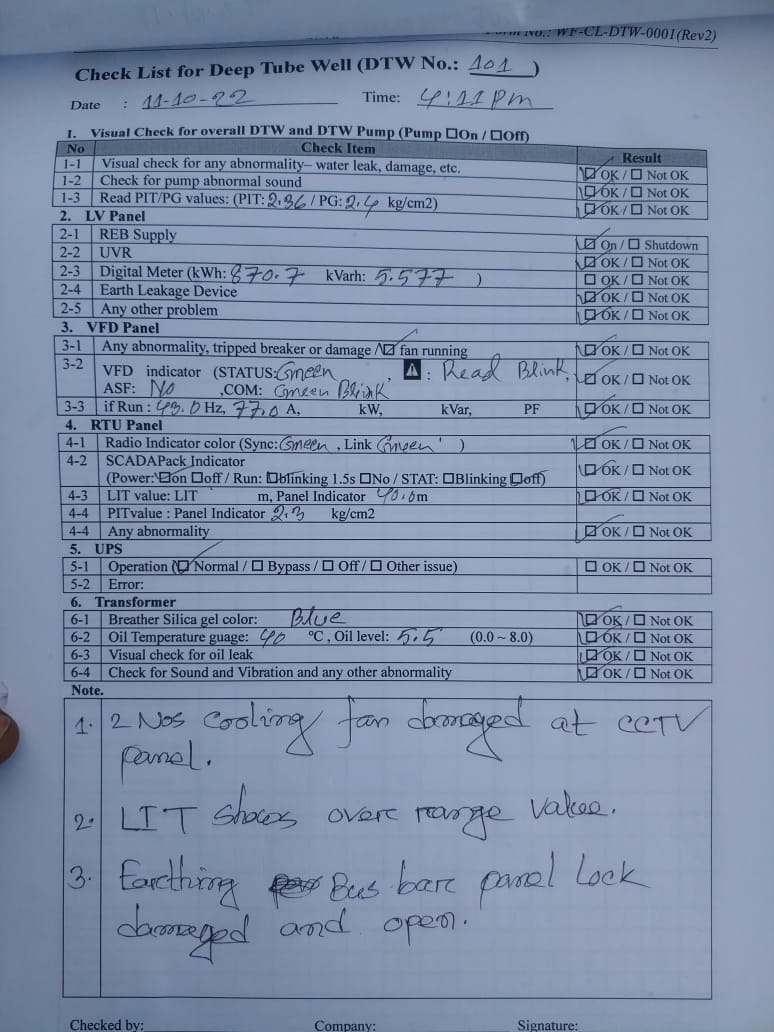 Form No.: WF-CL-DTW-0001(Rev2)
Check List for Deep Tube Well (DTW No.: 101 )
Date : 11-10-22 Time: 4:11 pm
1. Visual Check for overall DTW and DTW Pump (Pump ☐On / ☐Off)
No Check Item Result
1-1 Visual check for any abnormality– water leak, damage, etc. ☑ OK / ☐ Not OK
1-2 Check for pump abnormal sound ☑ OK / ☐ Not OK
1-3 Read PIT/PG values: (PIT: 2.36 / PG: 2.4 kg/cm2) ☑ OK / ☐ Not OK
2. LV Panel
2-1 REB Supply ☑ On / ☐ Shutdown
2-2 UVR ☑ OK / ☐ Not OK
2-3 Digital Meter (kWh: 870.7 kVarh: 5.577 ) ☐ OK / ☐ Not OK
2-4 Earth Leakage Device ☑ OK / ☐ Not OK
2-5 Any other problem ☑ OK / ☐ Not OK
3. VFD Panel
3-1 Any abnormality, tripped breaker or damage / ☑ fan running ☑ OK / ☐ Not OK
3-2 VFD indicator (STATUS: Green , ⚠ : Read Blink, ☑ OK / ☐ Not OK
ASF: No ,COM: Green Blink
3-3 if Run : 43.0 Hz, 77.0 A, kW, kVar, PF ☑ OK / ☐ Not OK
4. RTU Panel
4-1 Radio Indicator color (Sync: Green , Link Green ) ☑ OK / ☐ Not OK
4-2 SCADAPack Indicator ☑ OK / ☐ Not OK
(Power: ☑on ☐off / Run: ☑blinking 1.5s ☐No / STAT: ☐Blinking ☑off)
4-3 LIT value: LIT m, Panel Indicator 40.0 m ☑ OK / ☐ Not OK
4-4 PITvalue : Panel Indicator 2.3 kg/cm2
4-4 Any abnormality ☑ OK / ☐ Not OK
5. UPS
5-1 Operation (☑ Normal / ☐ Bypass / ☐ Off / ☐ Other issue) ☐ OK / ☐ Not OK
5-2 Error:
6. Transformer
6-1 Breather Silica gel color: Blue ☑ OK / ☐ Not OK
6-2 Oil Temperature guage: 40 °C , Oil level: 5.5 (0.0 ~ 8.0) ☑ OK / ☐ Not OK
6-3 Visual check for oil leak ☑ OK / ☐ Not OK
6-4 Check for Sound and Vibration and any other abnormality ☑ OK / ☐ Not OK
Note.
1. 2 Nos cooling fan damaged at CCTV
panel.
2. LIT shows over range value.
3. Earthing Bus bar panel Lock
damaged and open.
Checked by: Company: Signature: